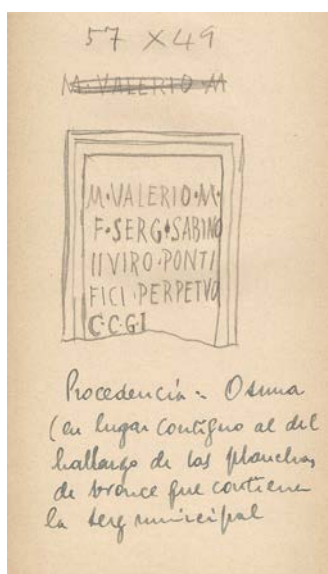 57 x 49
M·VALERIO M
M·VALERIO·M·
F·SERG·SABINO
IIVIRO·PONTI
FICI·PERPETVO
C·C·G·I
Procedencia - Osuna
(en lugar contiguo al del
hallazgo de las planchas
de bronce que contienen
la
municipal